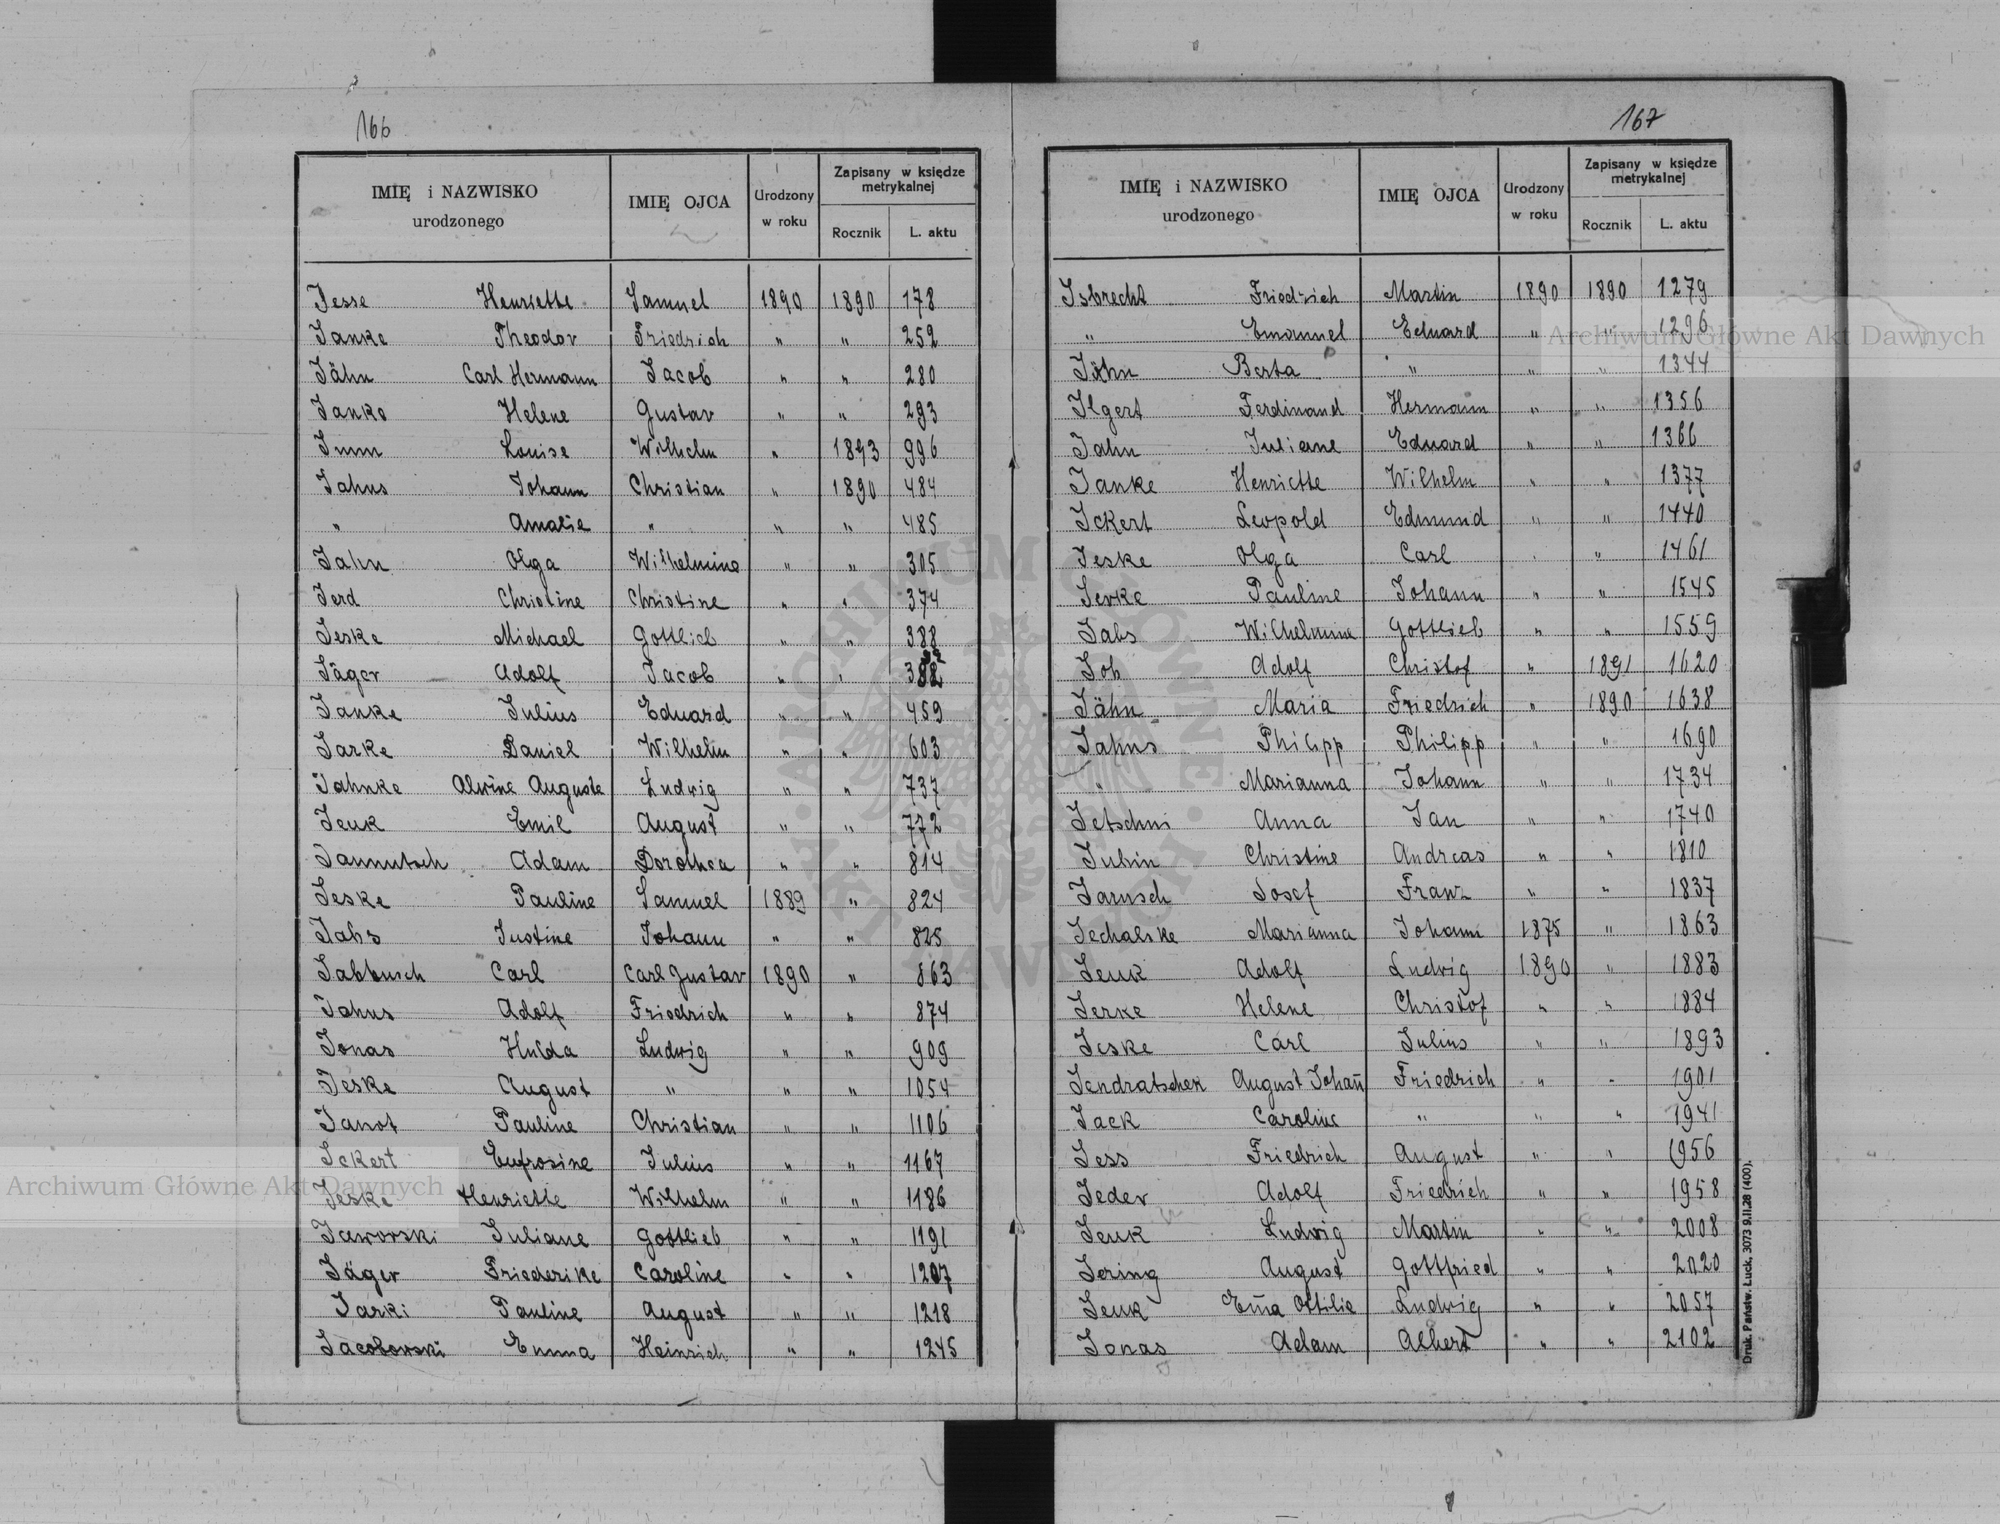 166
IMIĘ i NAZWISKO urodzonego IMIĘ OJCA Urodzony w roku Zapisany w księdze metrykalnej Rocznik L. aktu
Jesse Henriette Samuel 1890 1890 178
Janke Theodor Friedrich " " 252
Jähn Carl Hermann Jacob " " 280
Janke Helene Gustav " " 293
Imm Louise Wilhelm " 1893 996
Jahns Johann Christian " 1890 484
" Amalie " " " 485
Jahn Olga Wilhelmine " " 305
Jerd Christine Christine " " 374
Jeske Michael Gottlieb " " 388
Jäger Adolf Jacob " "
Janke Julius Eduard " " 459
Jarke Daniel Wilhelm " " 603
Jahnke Alwine Auguste Ludwig " " 737
Jeuk Emil August " " 772
Jannutsch Adam Dorothea " " 814
Jeske Pauline Samuel 1889 " 824
Jabs Justine Johann " " 825
Jabbusch Carl Carl Gustav 1890 " 863
Jahns Adolf Friedrich " " 874
Jonas Hulda Ludwig " " 909
Jeske August " " " 1054
Janot Pauline Christian " " 1106
Ickert Eufrosine Julius " " 1167
Jeske Henriette Wilhelm " " 1186
Jaworski Juliane Gottlieb " " 1191
Jäger Friederike Caroline " " 1207
Jarki Pauline August " " 1218
Jacobowski Emma Heinrich " " 1245
167
IMIĘ i NAZWISKO urodzonego IMIĘ OJCA Urodzony w roku Zapisany w księdze metrykalnej Rocznik L. aktu
Isbrecht Friedrich Martin 1890 1890 1279
" Emanuel Eduard " " 1296
Jähn Berta " " " 1344
Ilgert Ferdinand Hermann " " 1356
Jahn Juliane Eduard " " 1366
Janke Henriette Wilhelm " " 1377
Ickert Leopold Edmund " " 1440
Jeske Olga Carl " " 1461
Jerke Pauline Johann " " 1545
Jabs Wilhelmine Gottlieb " " 1559
Joh Adolf Christof " 1891 1620
Jähn Maria Friedrich " 1890 1638
Jahns Philipp Philipp " " 1690
" Marianna Johann " " 1734
Jetschni Anna Jan " " 1740
Jubin Christine Andreas " " 1810
Jarusch Josef Franz " " 1837
Jechalske Marianna Johann 1875 " 1863
Jeuk Adolf Ludwig 1890 " 1883
Jerke Helene Christof " " 1884
Jeske Carl Julius " " 1893
Jendratschek August Johan̄ Friedrich " " 1901
Jack Caroline " " " 1941
Jess Friedrich August " " 1956
Jeder Adolf Friedrich " " 1958
Jeuk Ludwig Martin " " 2008
Jering August Gottfried " " 2020
Jeuk Em̄a Ottilie Ludwig " " 2057
Jonas Adam Albert " " 2102
Druk. Państw. Łuck. 3073 9.II.28 (400).
Archiwum Główne Akt Dawnych
Archiwum Główne Akt Dawnych
ARCHIWUM GŁÓWNE AKT DAWNYCH